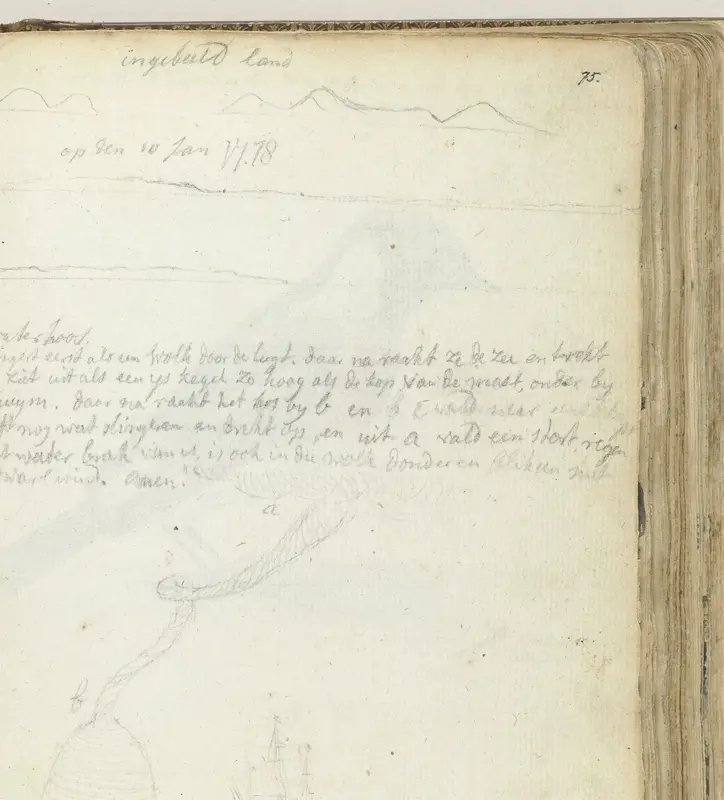 ingebeeld land
75.
op den 10 Jan 1778
waterhoos.
eerst als een wolk door de lugt. daar na raakt ze de zee en trekt
ziet uit als een ys kegel zo hoog als de top van de mast, onder by
daar na raakt het los by b en
nog wat slingeren en trekt op, en uit a vald een stort regen
water brak van is, is ook in die wolk donder en bliksem met
dwarl wind. Amen.
a
b